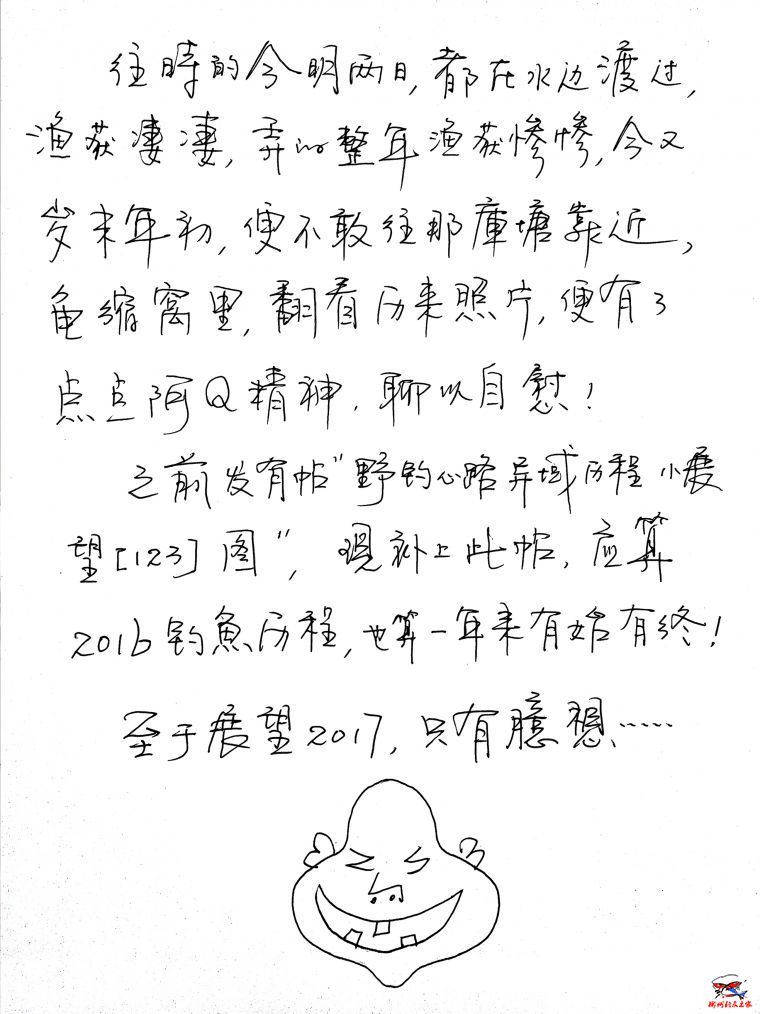 往時的今明两日,都在水边渡过,
渔获凄凄,弄的整年渔获惨惨,今又
岁末年初,便不敢往那庫塘靠近,
龟缩窩里,翻看历来照片,便有了
点点阿Q精神,聊以自慰!
之前发有帖"野钓心路异域历程小展
望[123]图",现补上此帖,应算
2016钓魚历程,也算一年来有始有终!
至于展望2017,只有臆想……
郴州钓友之家